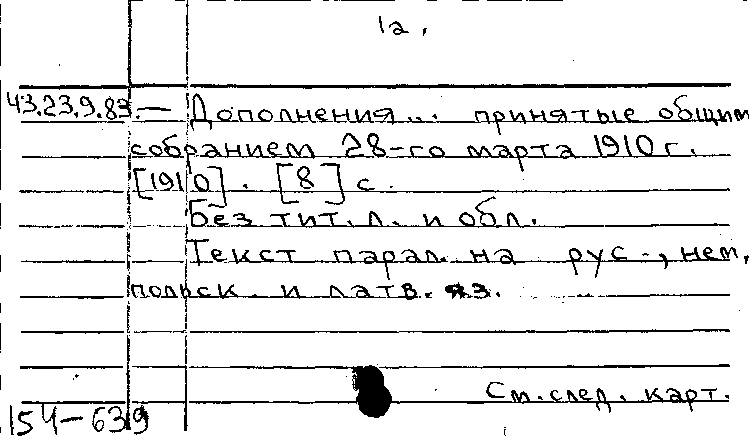 1а.
43.23.9.83.— Дополнения... принятые общим
собранием 28-го марта 1910 г.
[1910]. [8] с.
Без тит. л. и обл.
Текст парал. на рус., нем,
польск. и латв. яз.
См. след. карт.
154-639